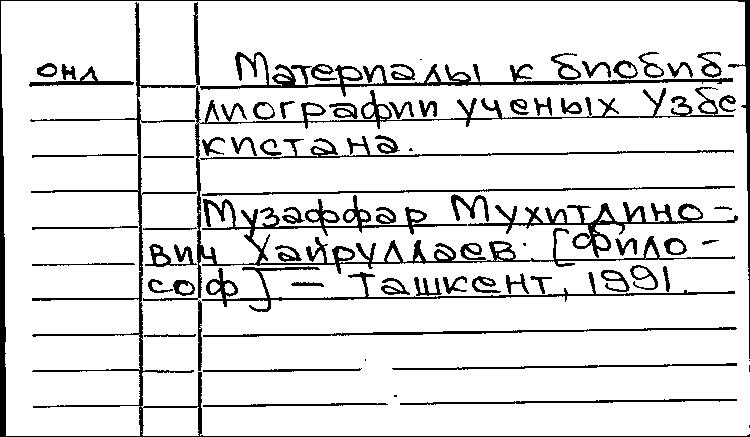 онл Материалы к биобиб-
лиографии ученых Узбе-
кистана.
Музаффар Мухитдино-
вич Хайруллаев. [Фило-
соф] — Ташкент, 1991.